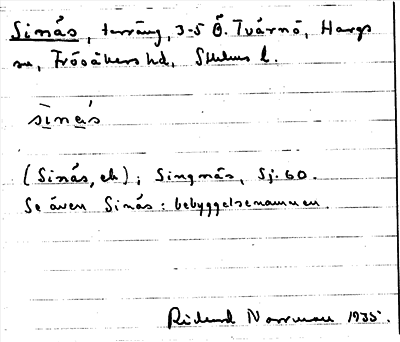 Sinäs, terräng, 3-5 Ö. Tvärnö, Hargs
sn, Frösåkers hd, Sthlms l.
sìnäs
(Sinäs, ek); Singnäs, Sj. 60.
Se även Sinäs: bebyggelsenamnen.
Rickard Norrman 1935.